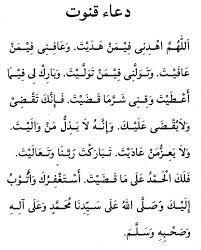 دعاء قنوت
اَللّٰهُمَّ اهْدِنِي فِيْمَنْ هَدَيْتَ. وَعَافِنِي فِيْمَنْ
عَافَيْتَ. وَتَوَلَّنِي فِيْمَنْ تَوَلَّيْتَ. وَبَارِكْ لِي فِيْمَا
أَعْطَيْتَ وَقِنِي شَرَّمَا قَضَيْتَ. فَإِنَّكَ تَقْضِى
وَلَايُقْضَى عَلَيْكَ. وَإِنَّهُ لَا يَذِلُّ مَنْ وَالَيْتَ.
وَلَا يَعِزُّمَنْ عَادَيْتَ. تَبَارَكْتَ رَبَّنَا وَتَعَالَيْتَ.
فَلَكَ الْحَمْدُ عَلَى مَا قَضَيْتَ. أَسْتَغْفِرُكَ وَأَتُوْبُ
إِلَيْكَ وَصَلَّى اللهُ عَلَى سَيِّدِنَا مُحَمَّدٍ وَعَلَى آلِهِ
وَصَحْبِهِ وَسَلَّمَ.